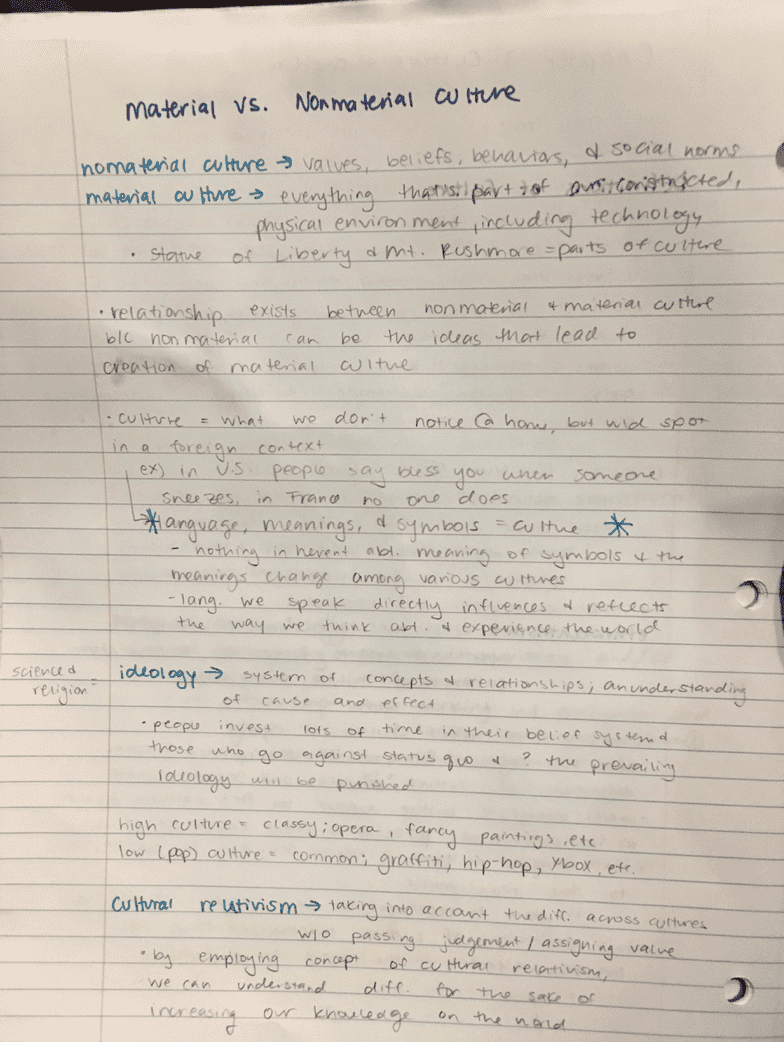 Material vs. Nonmaterial Culture
nomaterial culture → values, beliefs, behaviors, & social norms
material culture → everything that is part of our constructed,
physical environment, including technology
• Statue of Liberty & Mt. Rushmore = parts of culture
• relationship exists between nonmaterial & material culture
b/c nonmaterial can be the ideas that lead to
creation of material culture
• culture = what we don't notice @ home, but wld spot
in a foreign context
ex) in U.S. people say bless you when someone
sneezes, in France no one does
* language, meanings, & symbols = culture *
- nothing inherent abt. meaning of symbols & the
meanings change among various cultures
- lang. we speak directly influences & reflects
the way we think abt. & experience the world
science &
religion =
ideology → system of concepts & relationships; an understanding
of cause and effect
• people invest lots of time in their belief system &
those who go against status quo & ? the prevailing
ideology will be punished
high culture = classy; opera, fancy paintings, etc.
low (pop) culture = common; graffiti, hip-hop, Xbox, etc.
Cultural relativism → taking into account the diff. across cultures
w/o passing judgement / assigning value
• by employing concept of cultural relativism,
we can understand diff. for the sake of
increasing our knowledge on the world